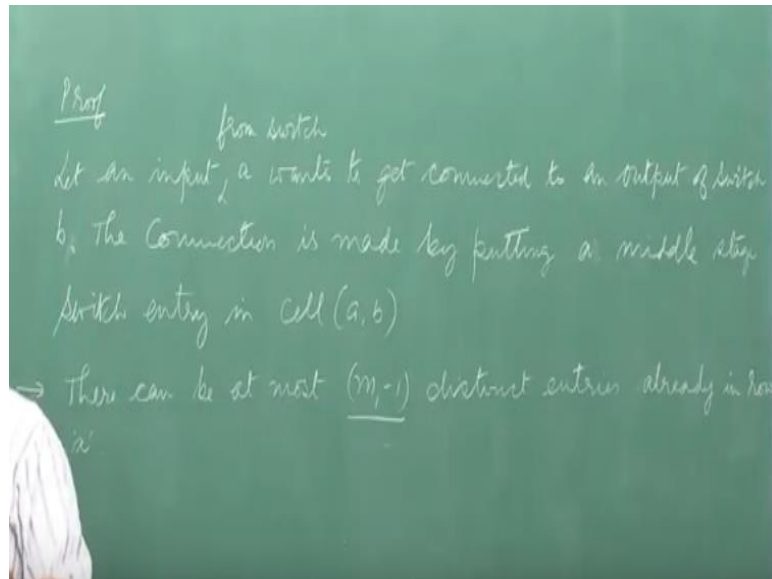 Proof
from switch
Let an input, a wants to get connected to an output of switch
b. The Connection is made by putting a middle stage
switch entry in cell (a, b)
→ There can be at most (m₁-1) distinct entries already in row
'a'